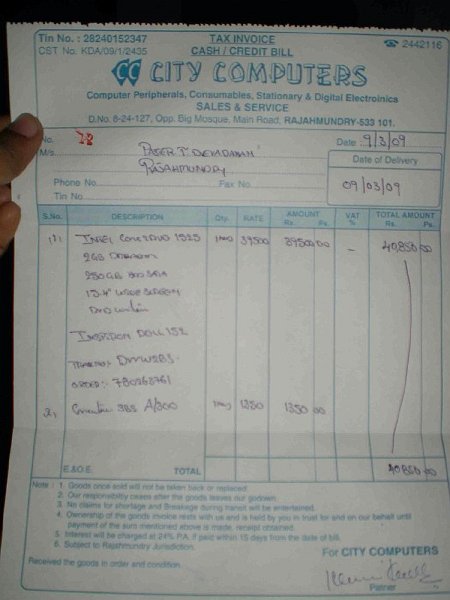 Tin No. : 28240152347
TAX INVOICE
☎ 2442116
CST No. KDA/09/1/2435
CASH / CREDIT BILL
CITY COMPUTERS
Computer Peripherals, Consumables, Stationary & Digital Electroinics
SALES & SERVICE
D.No. 8-24-127, Opp. Big Mosque, Main Road, RAJAHMUNDRY-533 101.
No. Date : 9/3/09
M/s.
RAJAHMUNDRY
Date of Delivery
Phone No. Fax No.
09/03/09
Tin No
S.No. DESCRIPTION Qty. RATE AMOUNT Rs. Ps. VAT % TOTAL AMOUNT Rs. Ps.
(1) INTEL 39500 39500 00 - 40,850 00
2GB
250 GB
15.4" WIDE SCREEN
DVD
DELL 152
2) A/300 1350 1350 00
E.&.O.E. TOTAL 40,850 00
Note : 1. Goods once sold will not be taken back or replaced.
2. Our responsibility ceases after the goods leaves our godown.
3. No claims for shortage and Breakage during transit will be entertained.
4. Ownership of the goods invoice rests with us and is held by you in trust for and on our behalf until
payment of the sum mentioned above is made, receipt obtained.
5. Interest will be charged at 24% P.A. if paid within 15 days from the date of bill.
6. Subject to Rajahmundry Jurisdiction.
Received the goods in order and condition.
For CITY COMPUTERS
Partner